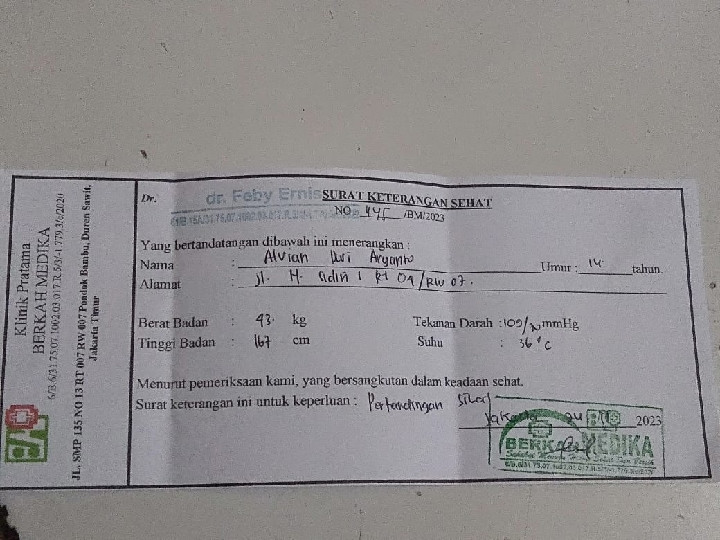 Klinik Pratama
BERKAH MEDIKA
JL. SMP 135 NO 13 RT 007 RW 007 Pondok Bambu, Duren Sawit,
Jakarta Timur
Dr.
dr. Feby Ernis
SURAT KETERANGAN SEHAT
NO /BM/2023
Yang bertandatangan dibawah ini menerangkan :
Nama : Alvian Aryanto Umur : 14 tahun.
Alamat : Jl. H. 1 RT 09/RW 07.
Berat Badan : 43 kg Tekanan Darah : 100/ mmHg
Tinggi Badan : 167 cm Suhu : 36°C
Menurut pemeriksaan kami, yang bersangkutan dalam keadaan sehat.
Surat keterangan ini untuk keperluan : Pertandingan Silat
Jakarta 2023
BERKAH MEDIKA